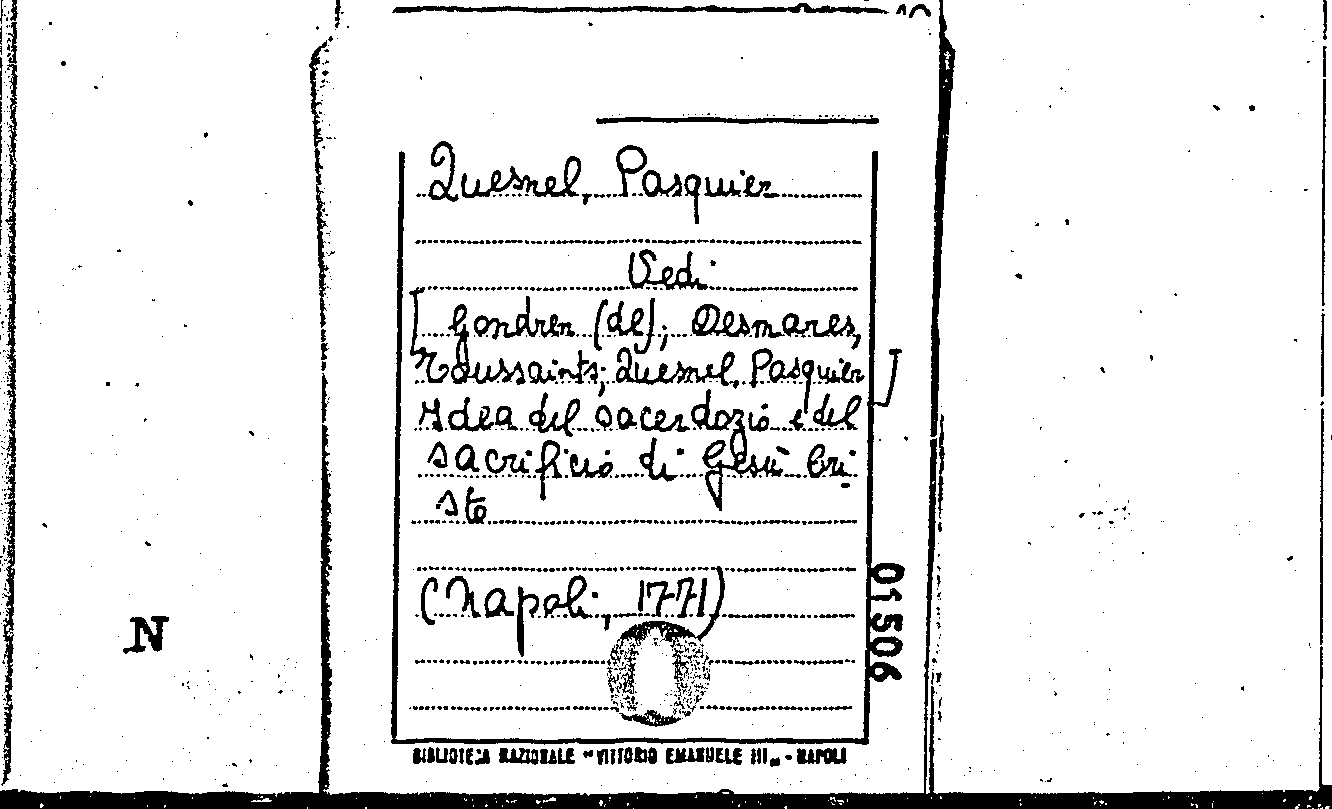 Quesnel, Pasquier
Vedi
[Gondren (de); Desmares,
Toussaints; Quesnel, Pasquier]
Idea del sacerdozio e del
sacrificio di Gesù Cri-
sto
(Napoli, 1771)
01506
N
BIBLIOTECA NAZIONALE "VITTORIO EMANUELE III" - NAPOLI